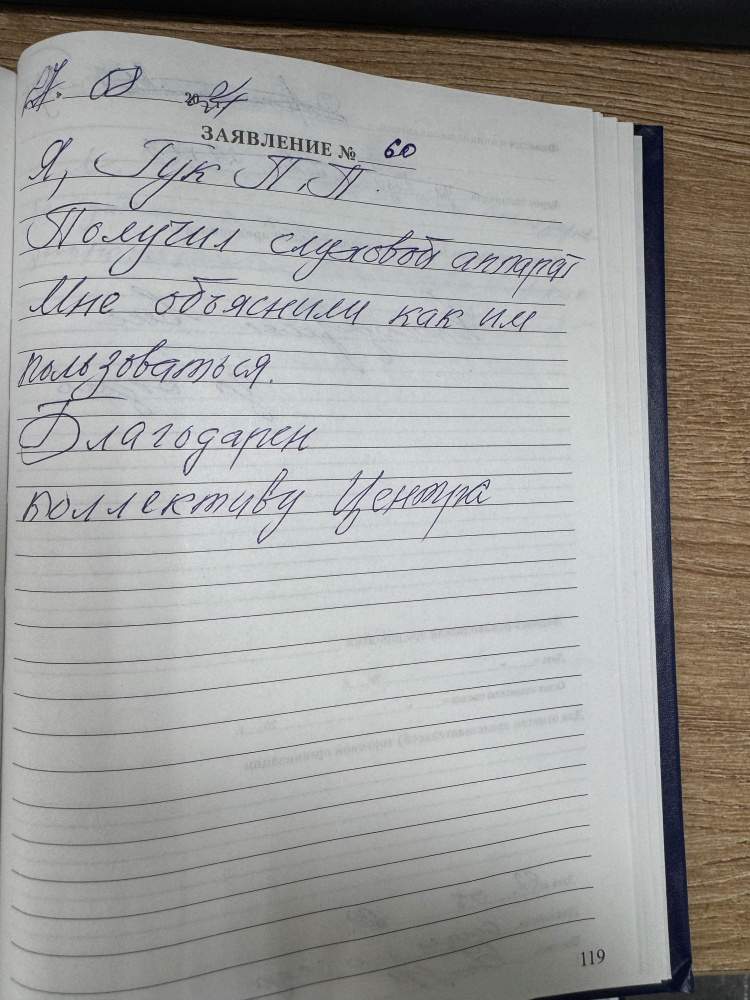 20
ЗАЯВЛЕНИЕ № 60
Я, Гук П.П.
Получил слуховой аппарат
Мне объяснили как им
пользоваться.
Благодарен
коллективу Центра
119